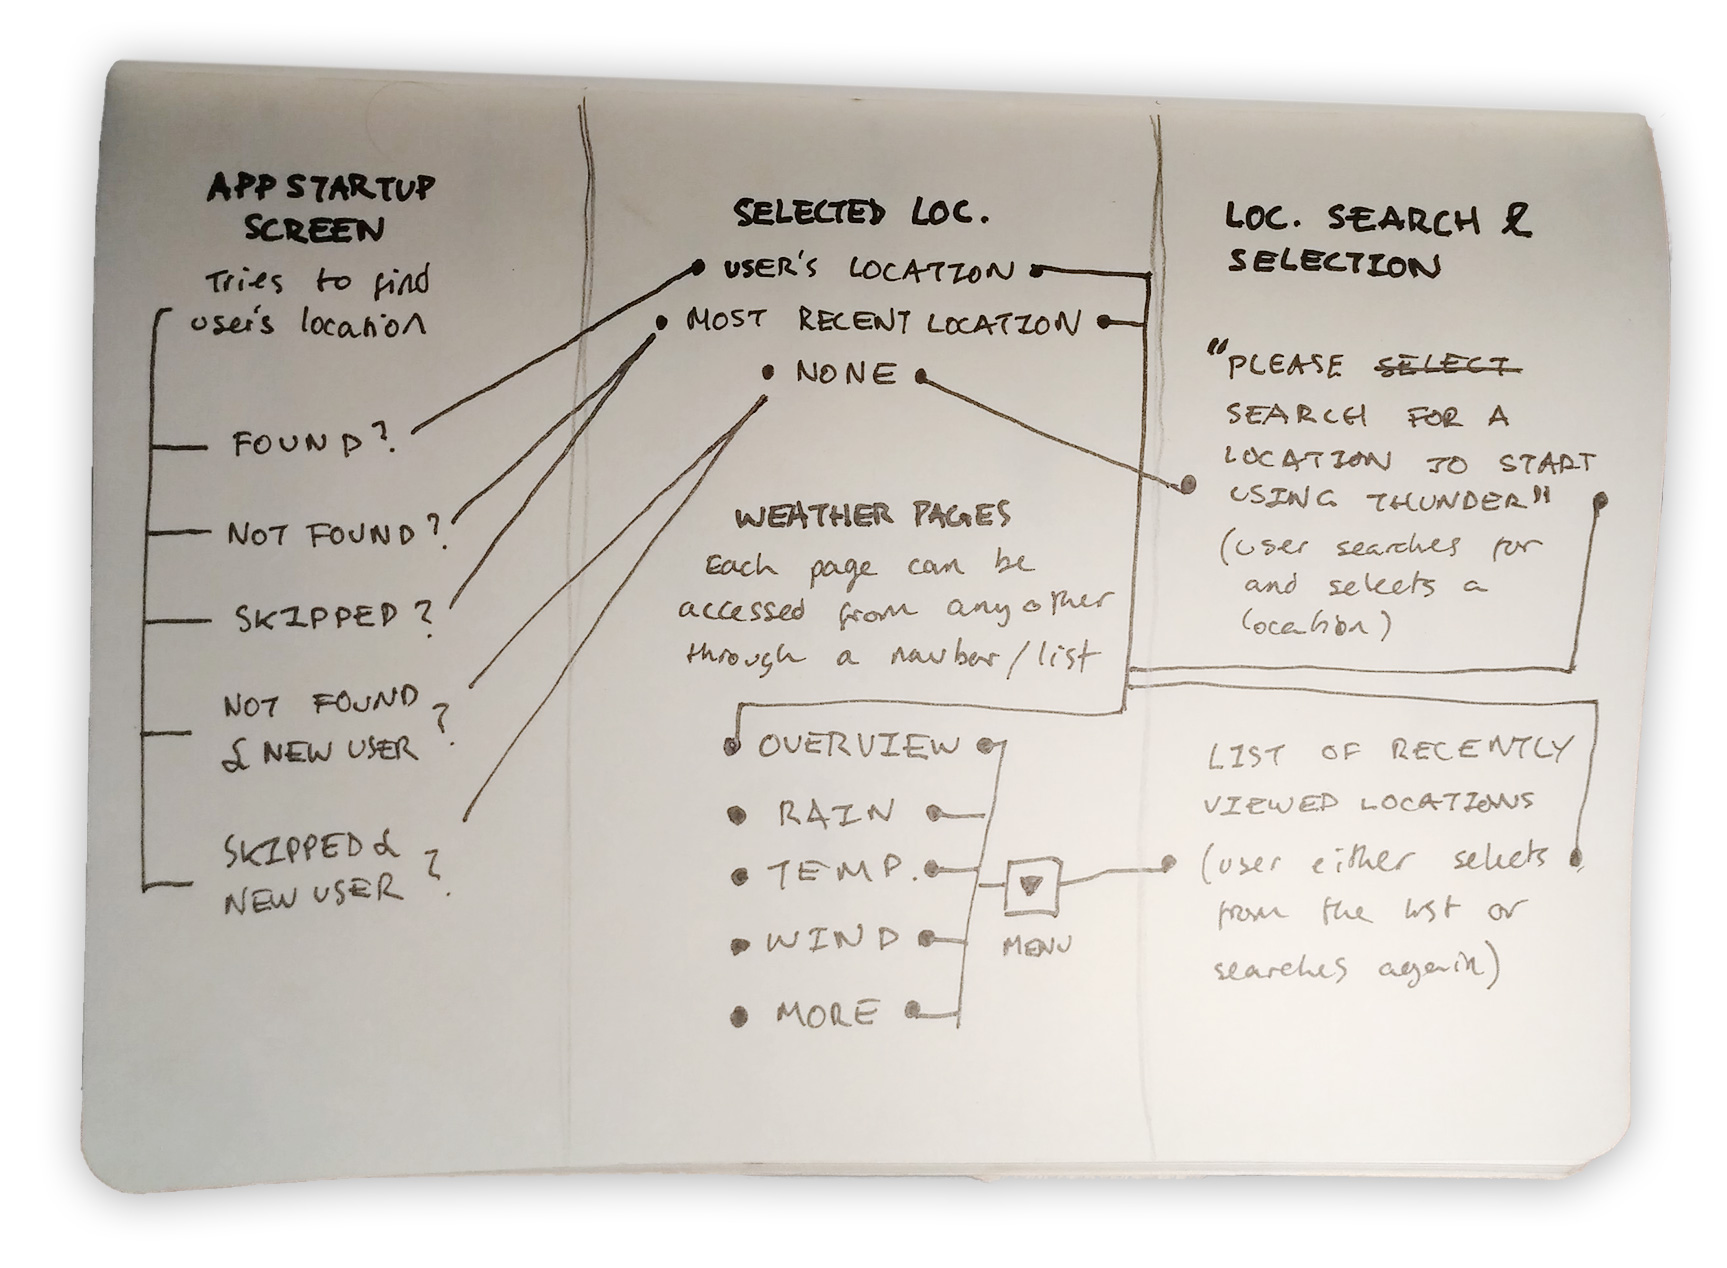 APP STARTUP
SCREEN
Tries to find
user's location
FOUND?
NOT FOUND?
SKIPPED?
NOT FOUND
& NEW USER?
SKIPPED &
NEW USER?
SELECTED LOC.
USER'S LOCATION
MOST RECENT LOCATION
NONE
WEATHER PAGES
Each page can be
accessed from any other
through a navbar/list
OVERVIEW
RAIN
TEMP.
WIND
MORE
MENU
LOC. SEARCH &
SELECTION
"PLEASE SELECT
SEARCH FOR A
LOCATION TO START
USING THUNDER"
(user searches for
and selects a
location)
LIST OF RECENTLY
VIEWED LOCATIONS
(user either selects
from the list or
searches again)